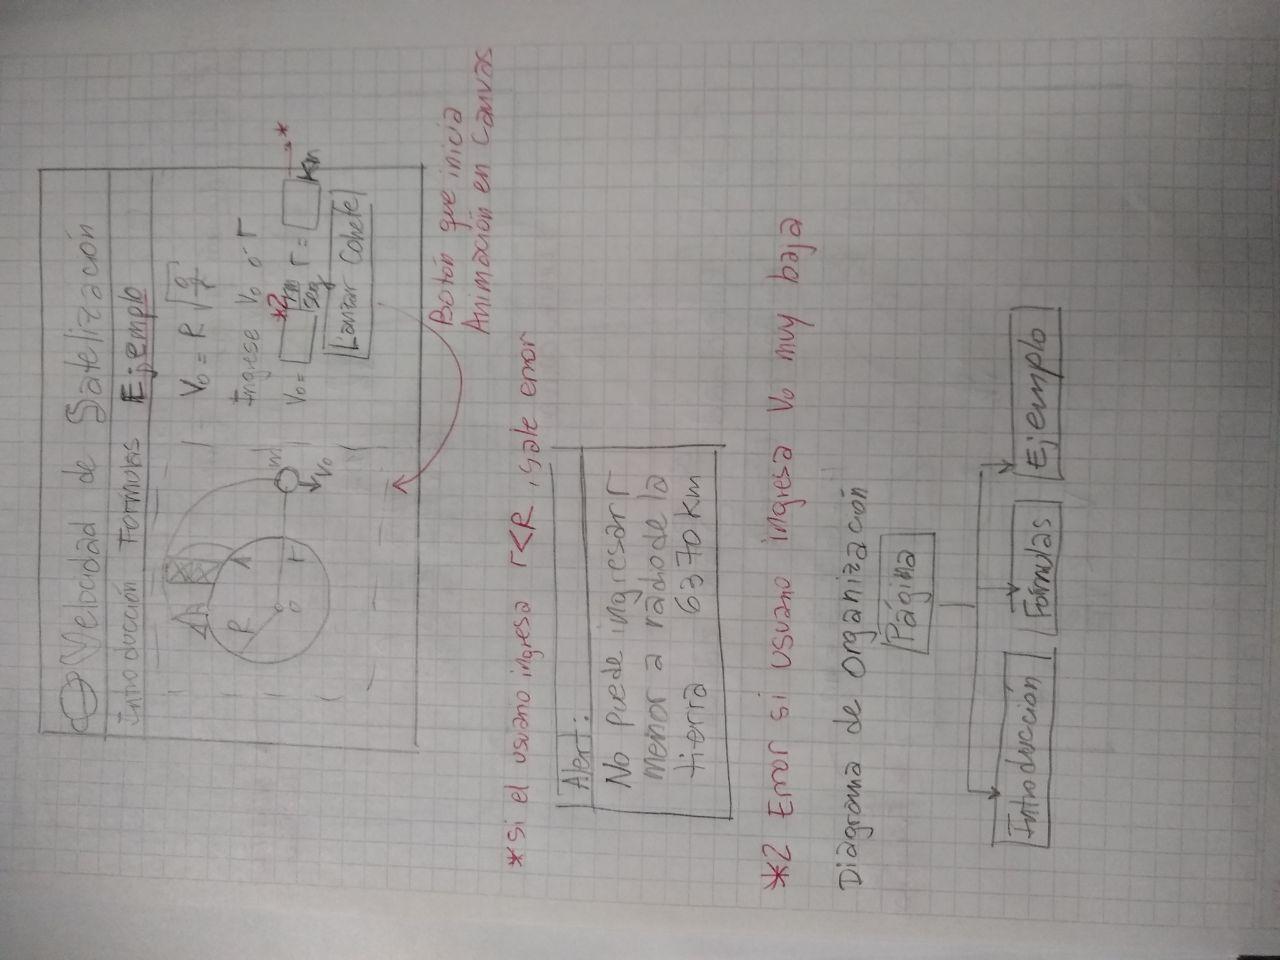 Velocidad de Satelización
Introducción Formulas Ejemplo
V₀ = R √(g/r)
Ingrese V₀ o r
V₀ = *2 m/seg r = km *
Lanzar Cohete
R
r
m
V₀
Botón que inicia
Animación en Canvas
*Si el usuario ingresa r<R, sale error
Alert:
No puede ingresar r
menor a radio de la
tierra 6370 km
*2 Error si usuario ingresa V₀ muy baja
Diagrama de organización
Página
Introducción Fórmulas Ejemplo